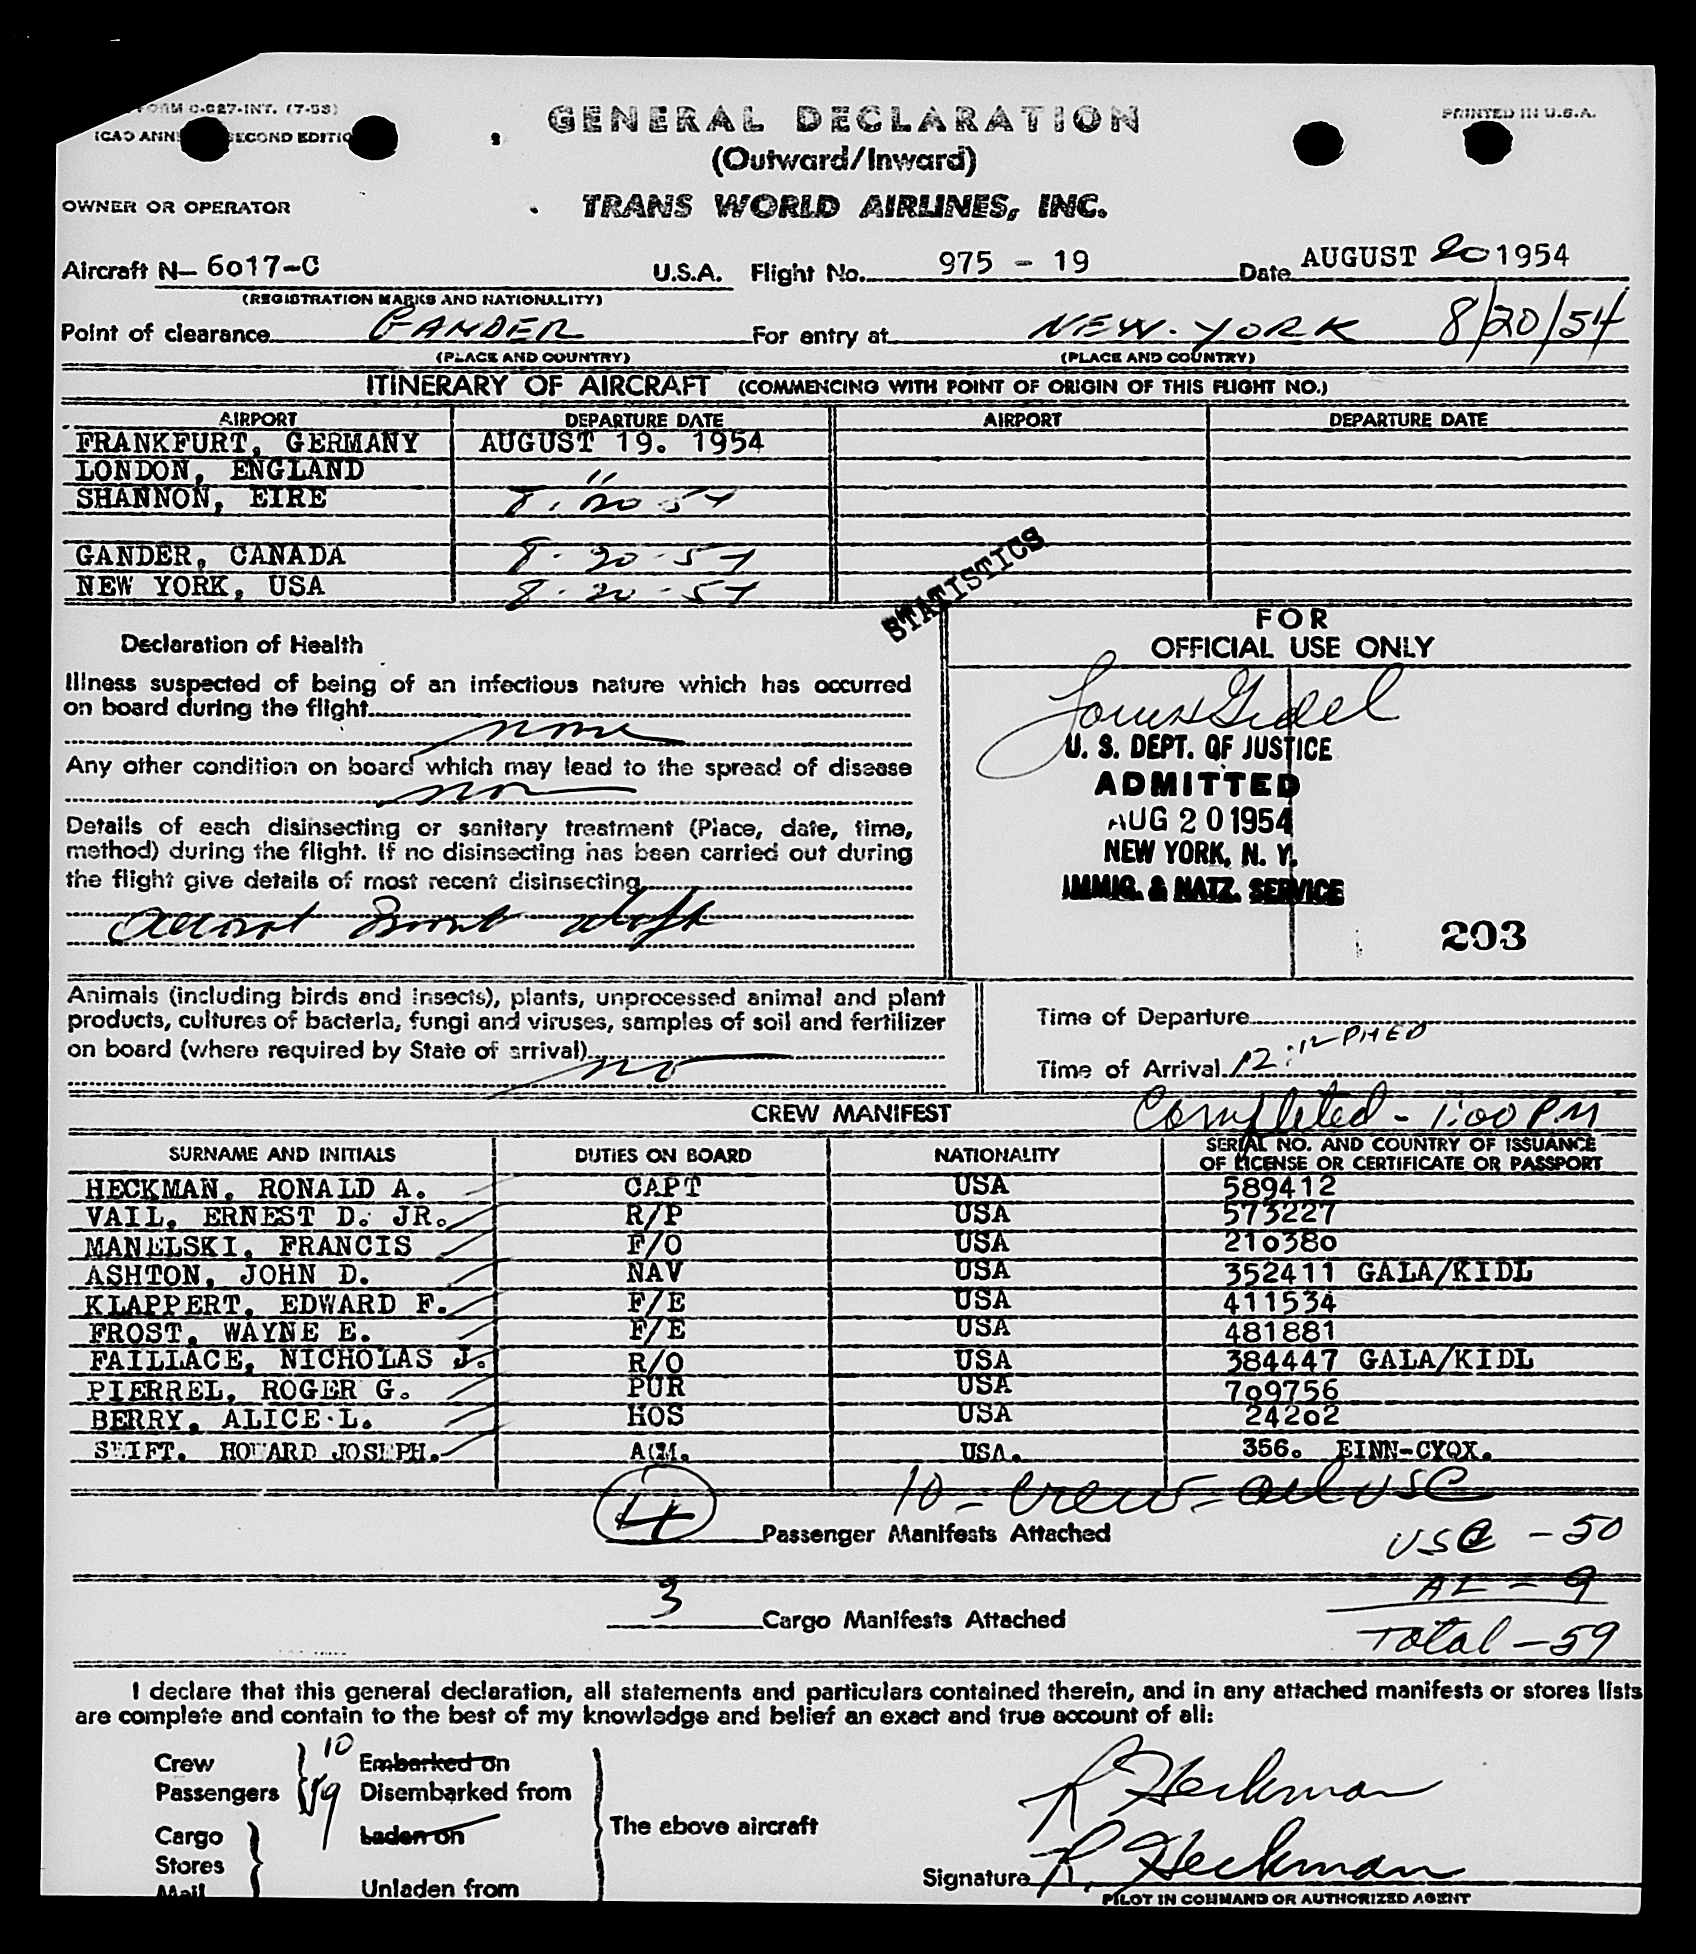 FORM O-027-INT. (7-53)
ICAO ANN SECOND EDITIO
GENERAL DECLARATION
PRINTED IN U.S.A.
(Outward/Inward)
OWNER OR OPERATOR TRANS WORLD AIRLINES, INC.
Aircraft N- 6017-C U.S.A. Flight No. 975 - 19 Date AUGUST 20 1954
(REGISTRATION MARKS AND NATIONALITY)
Point of clearance GANDER For entry at NEW-YORK 8/20/54
(PLACE AND COUNTRY) (PLACE AND COUNTRY)
ITINERARY OF AIRCRAFT (COMMENCING WITH POINT OF ORIGIN OF THIS FLIGHT NO.)
AIRPORT DEPARTURE DATE AIRPORT DEPARTURE DATE
FRANKFURT, GERMANY AUGUST 19. 1954
LONDON, ENGLAND "
SHANNON, EIRE 8.20-54
GANDER, CANADA 8-20-54
NEW YORK, USA 8-20-54
STATISTICS
Declaration of Health
Illness suspected of being of an infectious nature which has occurred
on board during the flight
none
Any other condition on board which may lead to the spread of disease
no
Details of each disinsecting or sanitary treatment (Place, date, time,
method) during the flight. If no disinsecting has been carried out during
the flight give details of most recent disinsecting
Aerosol Bomb
FOR
OFFICIAL USE ONLY
U. S. DEPT. OF JUSTICE
ADMITTED
AUG 20 1954
NEW YORK, N. Y.
IMMIG. & NATZ. SERVICE
203
Animals (including birds and insects), plants, unprocessed animal and plant
products, cultures of bacteria, fungi and viruses, samples of soil and fertilizer
on board (where required by State of arrival)
no
Time of Departure
Time of Arrival 12:12 PM ED
CREW MANIFEST Completed - 1:00 P.M
SURNAME AND INITIALS DUTIES ON BOARD NATIONALITY SERIAL NO. AND COUNTRY OF ISSUANCE
OF LICENSE OR CERTIFICATE OR PASSPORT
HECKMAN, RONALD A. CAPT USA 589412
VAIL, ERNEST D. JR. R/P USA 573227
MANELSKI, FRANCIS F/O USA 210380
ASHTON, JOHN D. NAV USA 352411 GALA/KIDL
KLAPPERT, EDWARD F. F/E USA 411534
FROST, WAYNE E. F/E USA 481881
FAILLACE, NICHOLAS J. R/O USA 384447 GALA/KIDL
PIERREL, ROGER G. PUR USA 709756
BERRY, ALICE L. HOS USA 24202
SWIFT. HOWARD JOSEPH. ACM. USA. 356. EINN-CYQX.
10 - crew - all USC
4 Passenger Manifests Attached
USC - 50
AL = 9
3 Cargo Manifests Attached
Total - 59
I declare that this general declaration, all statements and particulars contained therein, and in any attached manifests or stores lists
are complete and contain to the best of my knowledge and belief an exact and true account of all:
Crew 10 Embarked on
Passengers 59 Disembarked from
The above aircraft
Cargo Laden on
Stores
Mail Unladen from
R Heckman
Signature R. Heckman
PILOT IN COMMAND OR AUTHORIZED AGENT